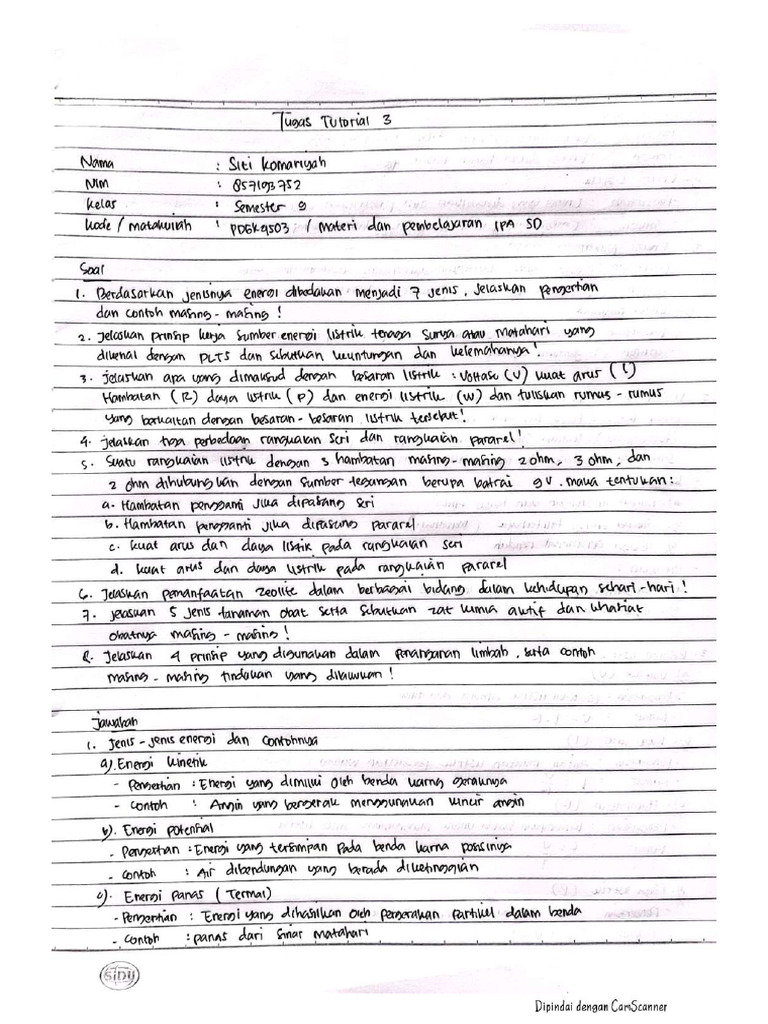 Tugas Tutorial 3
Nama : Siti Komariyah
NIM : 857193752
Kelas : Semester 9
Kode / matakuliah : PDGK4503 / materi dan pembelajaran IPA SD
Soal
1. Berdasarkan jenisnya energi dibedakan menjadi 7 jenis, jelaskan pengertian
dan contoh masing-masing !
2. Jelaskan prinsip kerja sumber energi listrik tenaga surya atau matahari yang
dikenal dengan PLTS dan sebutkan keuntungan dan kelemahanya!
3. Jelaskan apa yang dimaksud dengan besaran listrik : Voltase (V) kuat arus (I)
Hambatan (R) daya listrik (P) dan energi listrik (W) dan tuliskan rumus-rumus
yang berkaitan dengan besaran-besaran listrik tersebut!
4. Jelaskan tiga perbedaan rangkaian seri dan rangkaian pararel!
5. Suatu rangkaian listrik dengan 3 hambatan masing-masing 2 ohm, 3 ohm, dan
2 ohm dihubungkan dengan sumber tegangan berupa batrai 9V. maka tentukan:
a. Hambatan pengganti jika dipasang seri
b. Hambatan pengganti jika dipasang pararel
c. kuat arus dan daya listik pada rangkaian seri
d. kuat arus dan daya listrik pada rangkaian pararel
6. Jelaskan pemanfaatan zeolite dalam berbagai bidang dalam kehidupan sehari-hari !
7. jelaskan 5 jenis tanaman obat serta sebutkan zat kimia aktif dan khasiat
obatnya masing-masing !
8. Jelaskan 4 prinsip yang digunakan dalam penanganan limbah, serta contoh
masing-masing tindakan yang dilakukan !
Jawaban
1. Jenis-jenis energi dan contohnya
a). Energi kinetik
- Pengertian : Energi yang dimiliki oleh benda karna geraknya
- Contoh : Angin yang bergerak menggunakan kincir angin
b). Energi potential
- Pengertian : Energi yang tersimpan pada benda karna posisinya
- contoh : Air dibendungan yang berada diketinggian
c). Energi panas (Termal)
- Pengertian : Energi yang dihasilkan oleh pergerakan partikel dalam benda
- contoh : panas dari sinar matahari
SIDU
Dipindai dengan CamScanner